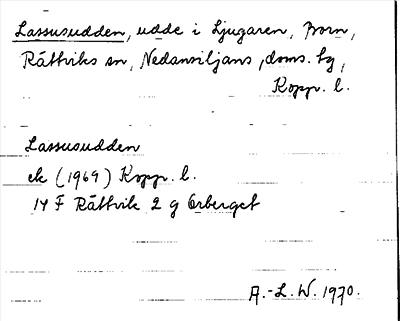 Lassusudden, udde i Ljugaren, Born,
Rättviks sn, Nedansiljans doms. tg,
Kopp. l.
Lassusudden
ek (1969) Kopp. l.
14 F Rättvik 2 g Orberget
A.-L. W. 1970.